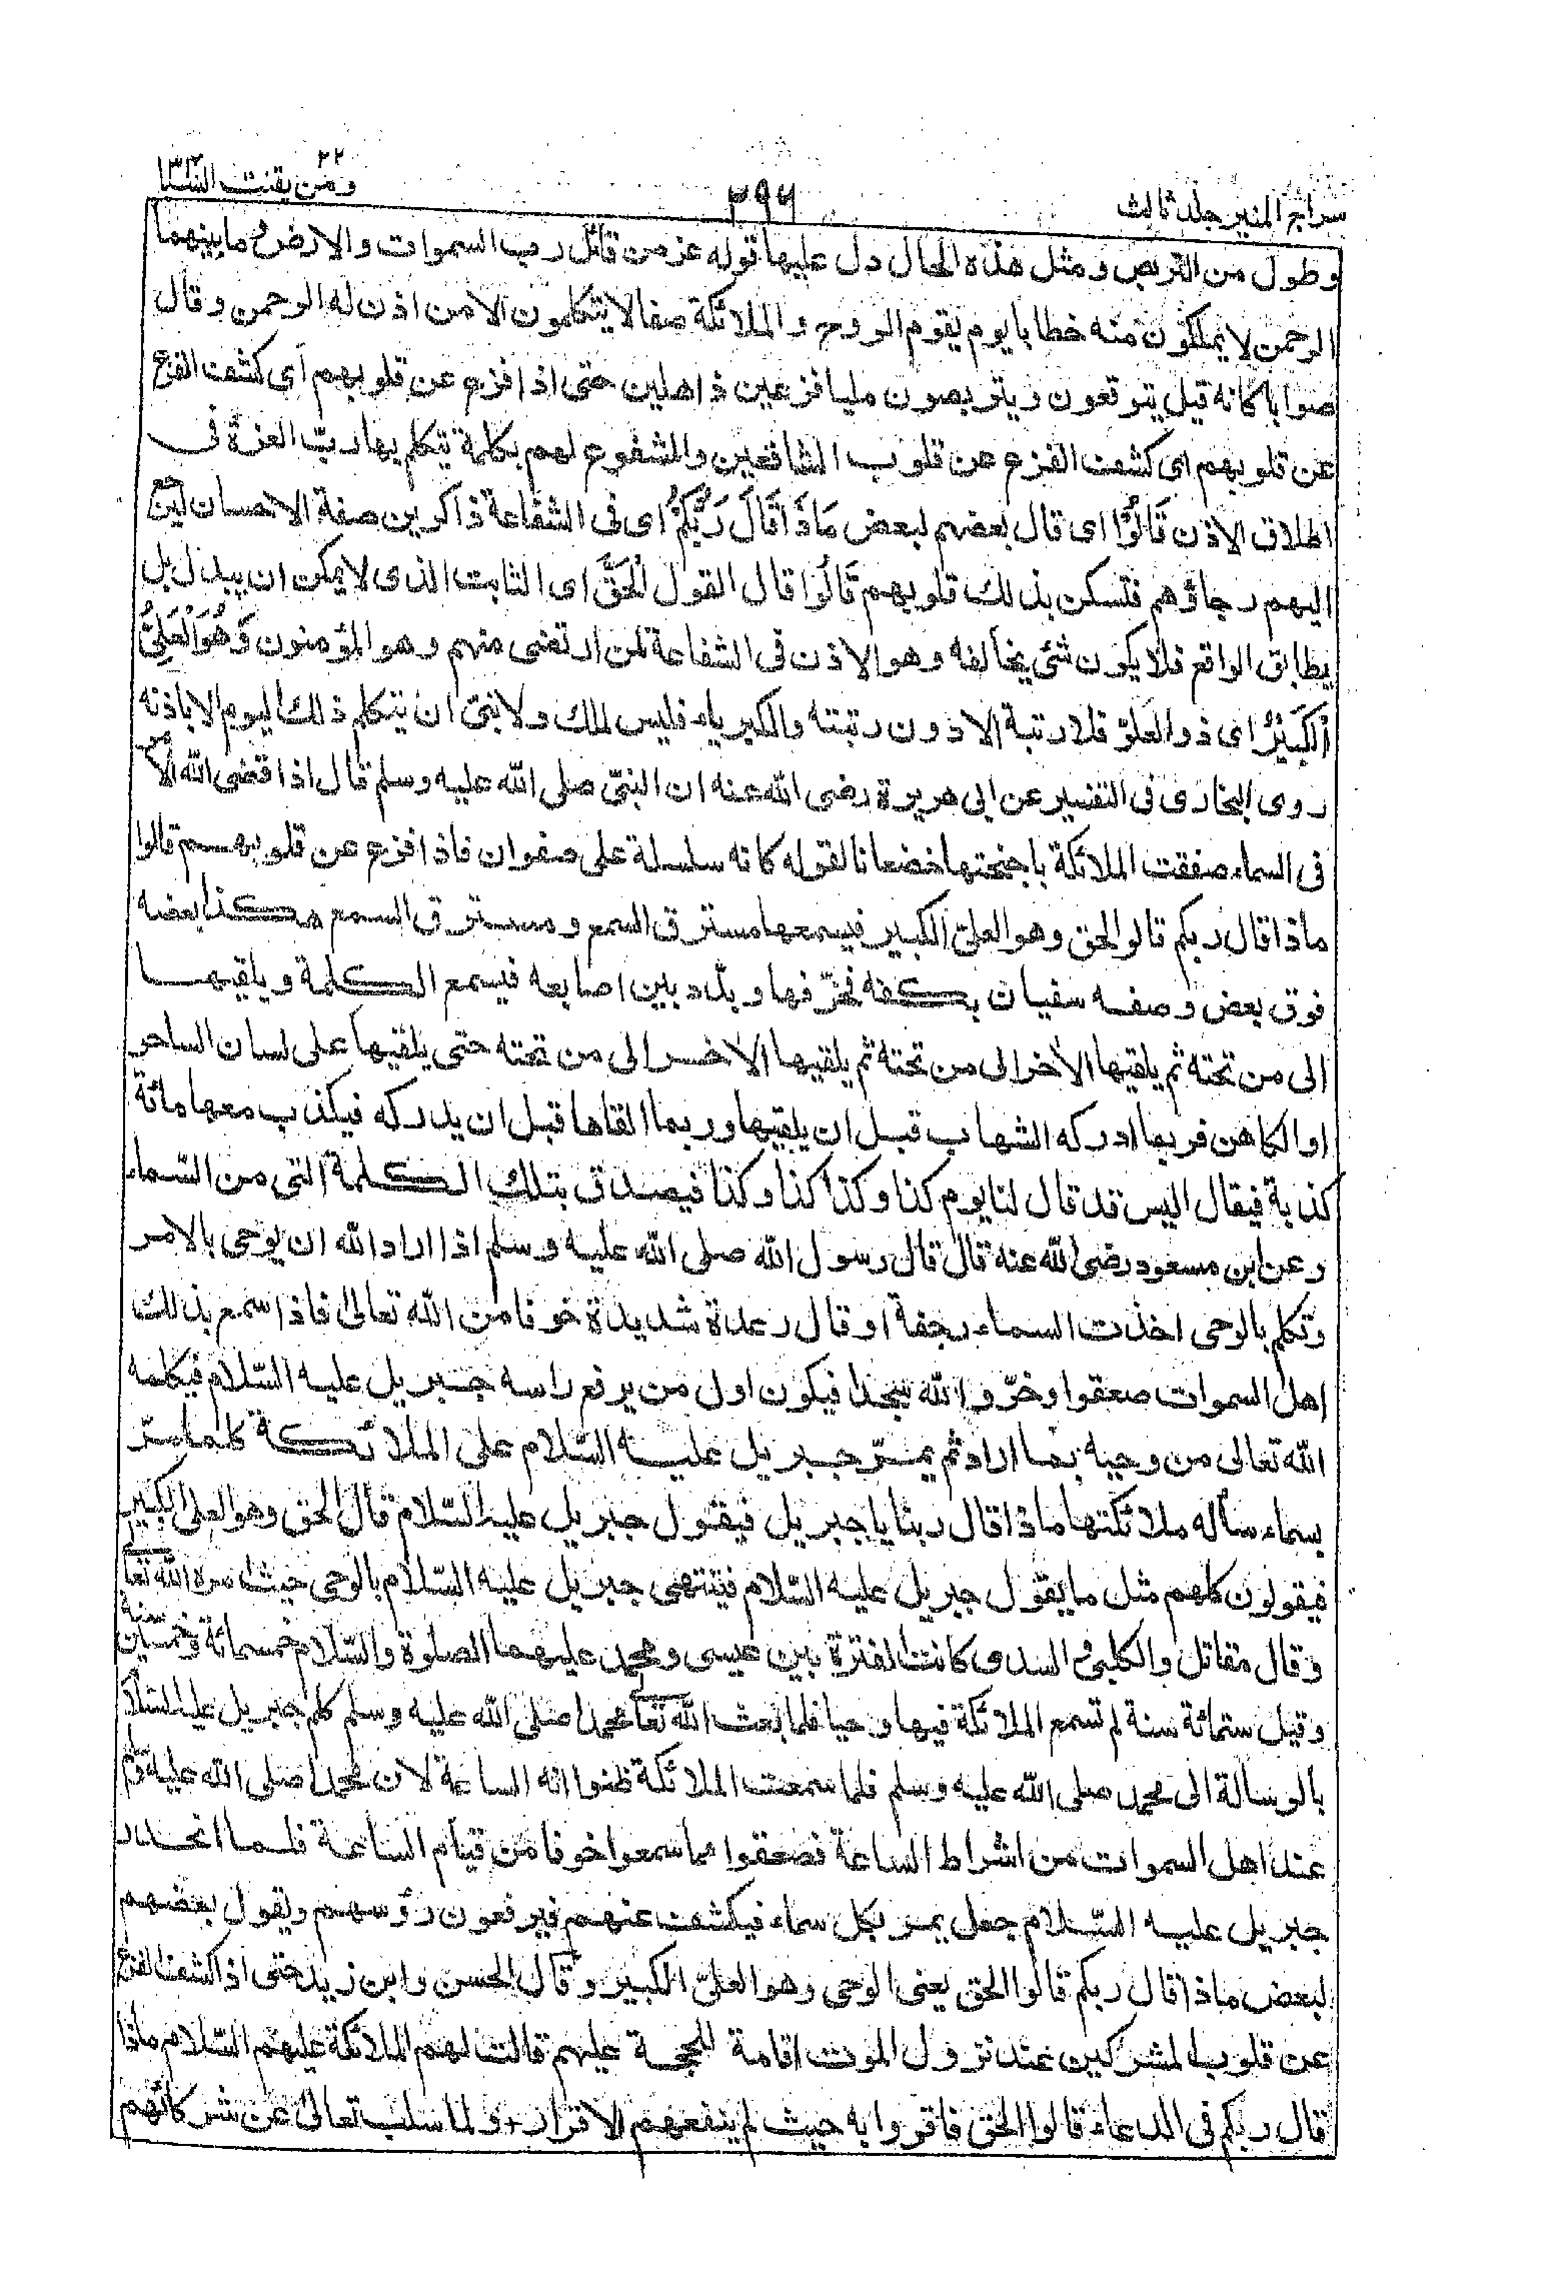 سراج المنير جلد ثالث
٢٩٦
ومن يقنت ٢٢
وطول من التربص ومثل هذه الحال دل عليها قوله عز من قائل رب السموات والارض وما بينهما
الرحمن لا يملكون منه خطابا يوم يقوم الروح والملائكة صفا لا يتكلمون الا من اذن له الرحمن وقال
صوابا كانه قيل يتوقعون ويتربصون مليا فزعين ذاهلين حتى اذا فزع عن قلوبهم اى كشف الفزع
عن قلوبهم اى كشف الفزع عن قلوب الشافعين والمشفوع لهم بكلمة يتكلم بها رب العزة فى
اطلاق الاذن قَالُوْا اى قال بعضهم لبعض مَاذَا قَالَ رَبُّكُمْ اى فى الشفاعة ذاكرين صفة الاحسان ليرجع
اليهم رجاؤهم فتسكن بذلك قلوبهم قَالُوا قال القول الْحَقَّ اى الثابت الذى لا يمكن ان يبدل بل
يطابق الواقع فلا يكون شئ يخالفه وهو الاذن فى الشفاعة لمن ارتضى منهم وهو المؤمنون وَهُوَ الْعَلِىُّ
الْكَبِيْرُ اى ذو العلوّ فلا رتبة الا دون رتبته والكبرياء فليس لملك ولا نبىّ ان يتكلم ذلك اليوم الا باذنه
روى البخارى فى التفسير عن ابى هريرة رضى الله عنه ان النبىّ صلى الله عليه وسلم قال اذا قضى الله الامر
فى السماء صفقت الملائكة باجنحتها خضعانا لقوله كانه سلسلة على صفوان فاذا فزع عن قلوبهم قالوا
ماذا قال ربكم قالوا الحق وهو العلىّ الكبير فيسمعها مسترق السمع ومسترق السمع هكذا بعضه
فوق بعض وصفه سفيان بكفه فحرّفها وبدّد بين اصابعه فيسمع الكلمة ويلقيها
الى من تحته ثم يلقيها الأخر الى من تحته ثم يلقيها الأخر الى من تحته حتى يلقيها على لسان الساحر
او الكاهن فربما ادركه الشهاب قبل ان يلقيها وربما القاها قبل ان يدركه فيكذب معها مائة
كذبة فيقال اليس قد قال لنا يوم كذا وكذا كذا وكذا فيصدق بتلك الكلمة التى من السّماء
وعن ابن مسعود رضى الله عنه قال قال رسول الله صلى الله عليه وسلم اذا اراد الله ان يوحى بالامر
وتكلم بالوحى اخذت السماء رجفة او قال رعدة شديدة خوفا من الله تعالى فاذا سمع بذلك
اهل السموات صعقوا وخرّوا لله سجدا فيكون اول من يرفع راسه جبريل عليه السّلام فيكلمه
الله تعالى من وحيه بما اراد ثم يمرّ جبريل عليه السّلام على الملائكة كلما مرّ
بسماء سأله ملائكتها ماذا قال ربنا يا جبريل فيقول جبريل عليه السّلام قال الحق وهو العلى الكبير
فيقولون كلهم مثل ما يقول جبريل عليه السّلام فينتهى جبريل عليه السّلام بالوحى حيث امره الله تعالى
وقال مقاتل والكلبى والسدى كانت الفترة بين عيسى ومحمد عليهما الصلوة والسّلام خمسمائة وخمسين سنة
وقيل ستمائة سنة لم تسمع الملائكة فيها وحيا فلما بعث الله تعالى محمدا صلى الله عليه وسلم كلم جبريل عليه السّلام
بالرسالة الى محمد صلى الله عليه وسلم فلما سمعت الملائكة ظنوا انه الساعة لان محمدا صلى الله عليه وسلم
عند اهل السموات من اشراط الساعة فصعقوا مما سمعوا خوفا من قيام الساعة فلما انحدر
جبريل عليه السّلام جعل يمر بكل سماء فيكشف عنهم فيرفعون رؤسهم ويقول بعضهم
لبعض ماذا قال ربكم قالوا الحق يعنى الوحى وهو العلىّ الكبير وقال الحسن وابن زيد حتى اذا كشف الفزع
عن قلوب المشركين عند نزول الموت اقامة للحجة عليهم قالت لهم الملائكة عليهم السّلام ماذا
قال ربكم فى الدعاء قالوا الحق فاقروا به حيث لم ينفعهم الاقرار ولما سلب تعالى عن شركائهم